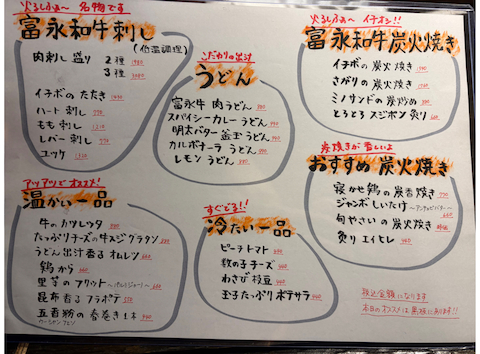 火るしふぁ〜 名物です
富永和牛刺し
(低温調理)
肉刺し盛り 2種
3種
イチボのたたき
ハート刺し 770
もも刺し
レバー刺し 770
ユッケ
こだわりの出汁
うどん
富永牛 肉うどん
スパイシーカレーうどん
明太バター釜玉うどん
カルボナーラうどん
レモンうどん
火るしふぁ〜 イチオシ!!
富永和牛炭火焼き
イチボの炭火焼き
さがりの炭火焼き
ミノサンドの炭炒め
とろとろスジポン炙り
炭焼きが旨しいよ
おすすめ炭火焼き
寝かせ鶏の炭香焼き 770
ジャンボしいたけ 〜アンチョビバター〜
旬やさいの炭火焼き
炙りエイヒレ
アツアツでオススメ!
温かい一品
牛のカツレツ
たっぷりチーズの牛スジグラタン
うどん出汁香るオムレツ
鶏から
里芋のフリット
昆布香るフラポテ
五香粉の春巻き 1本
すぐでる!!
冷たい一品
ピーチトマト
数の子チーズ
わさび枝豆
玉子たっぷりポテサラ
税込金額になります
本日のオススメは黒板に有ります!!